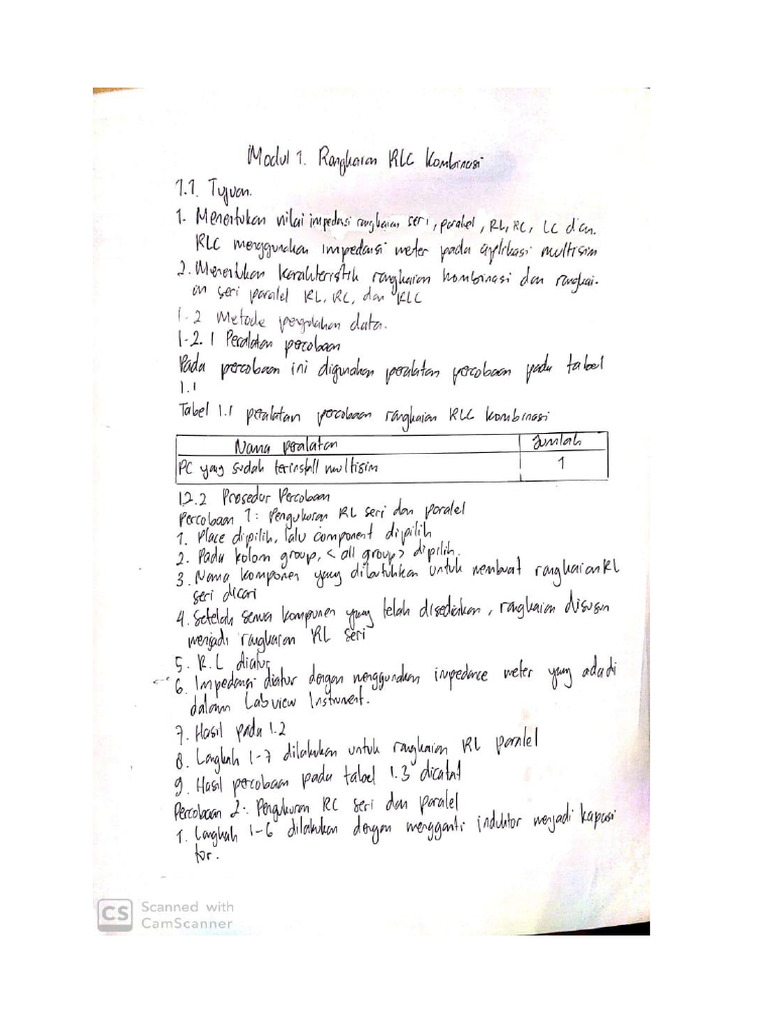 Modul 1. Rangkaian RLC Kombinasi
1.1. Tujuan.
1. Menentukan nilai impedansi rangkaian seri, paralel, RL, RC, LC dan.
RLC menggunakan impedansi meter pada aplikasi multisim
2. Menentukan karakteristik rangkaian kombinasi dan rangkai-
an seri paralel RL, RC, dan RLC
1.2 Metode pengolahan data.
1.2.1 Peralatan percobaan
Pada percobaan ini digunakan peralatan percobaan pada tabel
1.1
Tabel 1.1 peralatan percobaan rangkaian RLC kombinasi
Nama peralatan Jumlah
PC yang sudah terinstall multisim 1
1.2.2 Prosedur Percobaan
Percobaan 1: Pengukuran RL seri dan paralel
1. Place dipilih, lalu component dipilih
2. Pada kolom group, <all group> dipilih.
3. Nama komponen yang dibutuhkan untuk membuat rangkaian RL
seri dicari
4. Setelah semua komponen yang telah disediakan, rangkaian disusun
menjadi rangkaian RL seri
5. R.L diatur
6. Impedansi diatur dengan menggunakan impedance meter yang ada di
dalam Labview Instrument.
7. Hasil pada 1.2
8. Langkah 1-7 dilakukan untuk rangkaian RL paralel
9. Hasil percobaan pada tabel 1.3 dicatat
Percobaan 2: Pengukuran RC seri dan paralel
1. Langkah 1-6 dilakukan dengan mengganti induktor menjadi kapasi
tor.
CS Scanned with
CamScanner